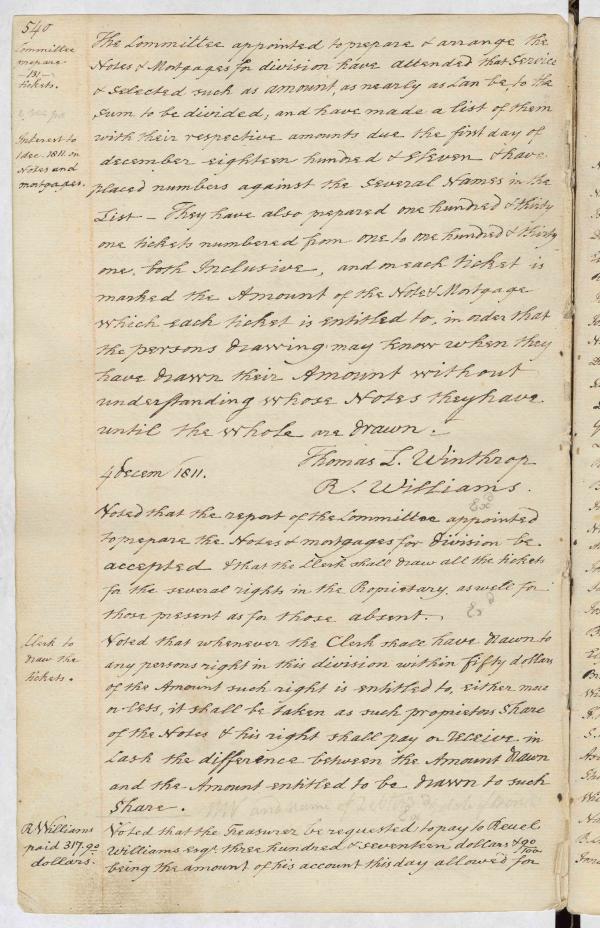 540
Committee
prepare
131
tickets.
Interest to
1 dec. 1811. on
Notes and
mortgages.
The Committee appointed to prepare & arrange the
Notes & Mortgages for division have attended that Service
& Selected such as amount, as nearly as Can be to the
Sum to be divided, and have made a list of them
with their respective amounts due the first day of
december eighteen hundred & Eleven & have
placed numbers against the Several Names in the
List – They have also prepared one hundred & thirty
one tickets numbered from one to one hundred & thirty
one, both Inclusive, and on each ticket is
marked the Amount of the Note & Mortgage
which each ticket is entitled to, in order that
the persons drawing may know when they
have drawn their Amount without
understanding whose Notes they have
until the whole are drawn.
4 decem 1811.
Thomas L. Winthrop
R. Williams.
Exd
Voted that the report of the Committee appointed
to prepare the Notes & mortgages for division be
accepted & that the Clerk shall draw all the tickets
for the several rights in the Propietary, as well for
those present as for those absent.
Exd
Clerk to
draw the
tickets.
Voted that whenever the Clerk shall have drawn to
any persons right in this division within fifty dollars
of the Amount such right is entitled to, either more
or less, it shall be taken as such propietors Share
of the Notes & his right shall pay or receive in
Cash the difference between the Amount drawn
and the Amount entitled to be drawn to such
Share.
R Williams
paid 317.90
dollars.
Voted that the Treasurer be requested to pay to Reuel
Williams esqr. three hundred & seventeen dollars & 90/100
being the amount of his account this day allowed for